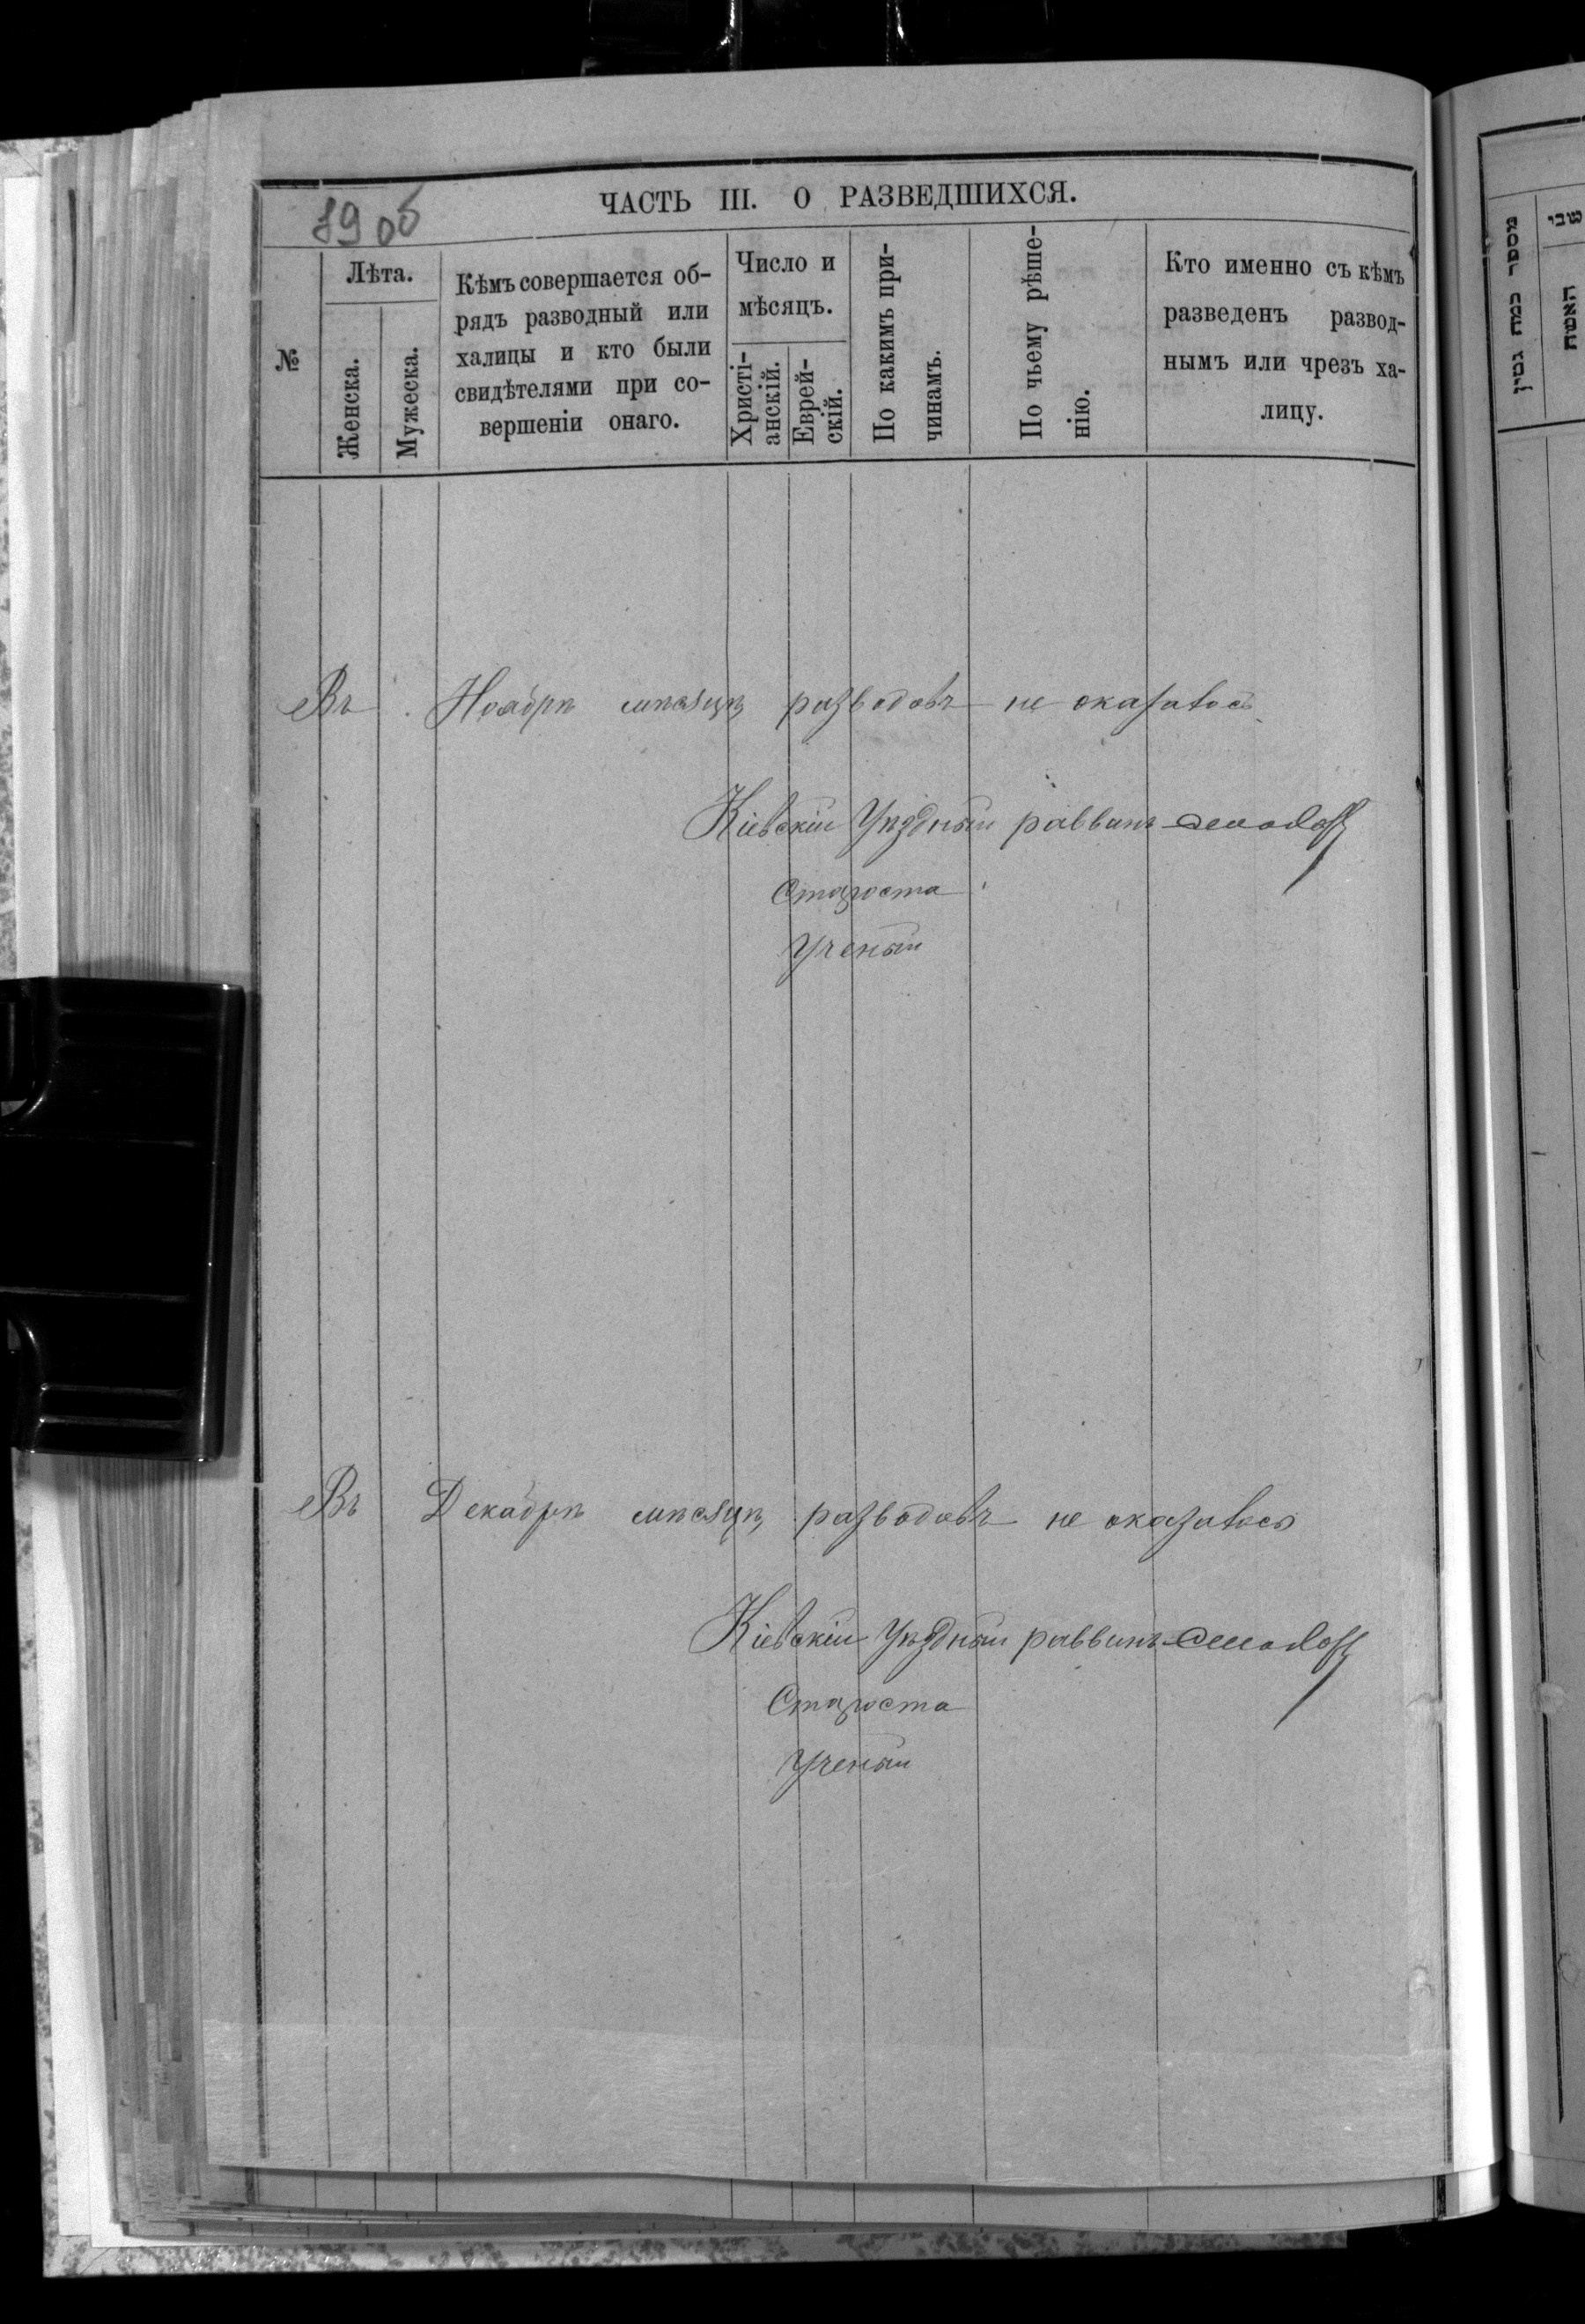 89 об
ЧАСТЬ III. О РАЗВЕДШИХСЯ.
№
Лѣта.
Женска.
Мужеска.
Кѣмъ совершается об-
рядъ разводный или
халицы и кто были
свидѣтелями при со-
вершеніи онаго.
Число и
мѣсяцъ.
Христі-
анскій.
Еврей-
скій.
По какимъ при-
чинамъ.
По чьему рѣше-
нію.
Кто именно съ кѣмъ
разведенъ развод-
нымъ или чрезъ ха-
лицу.
Въ Ноябрѣ мѣсяцѣ разводовъ не оказалось
Кіевскій Уѣздный раввинъ
Староста
Ученый
Въ Декабрѣ мѣсяцѣ разводовъ не оказалось
Кіевскій Уѣздный раввинъ
Староста
Ученый
מספר כמה גטין
שני
האשה